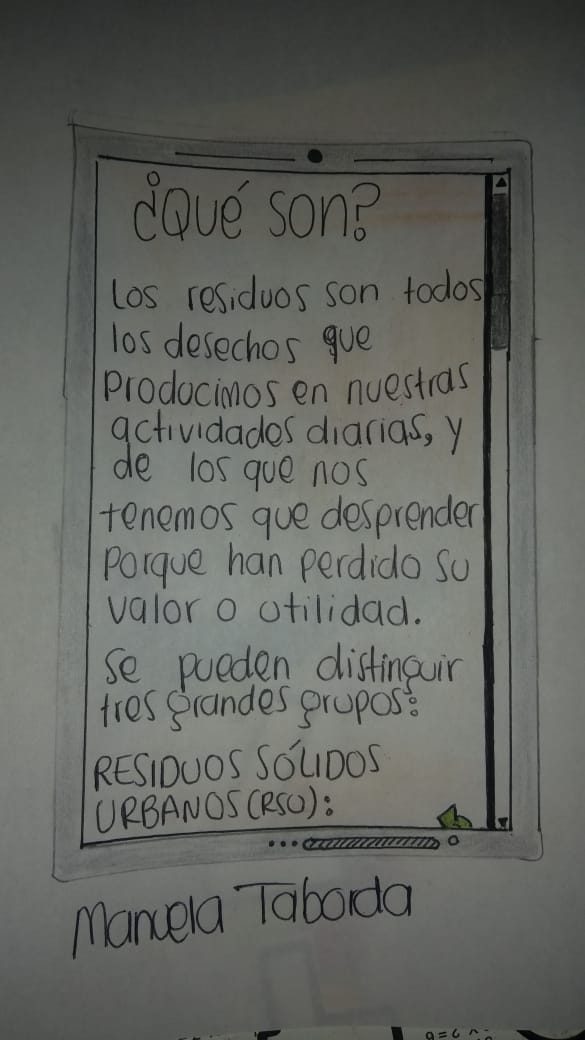 ¿Qué son?
Los residuos son todos
los desechos que
producimos en nuestras
actividades diarias, y
de los que nos
tenemos que desprender
porque han perdido su
valor o utilidad.
Se pueden distinguir
tres grandes grupos:
RESIDUOS SÓLIDOS
URBANOS (RSU):
Manuela Taborda